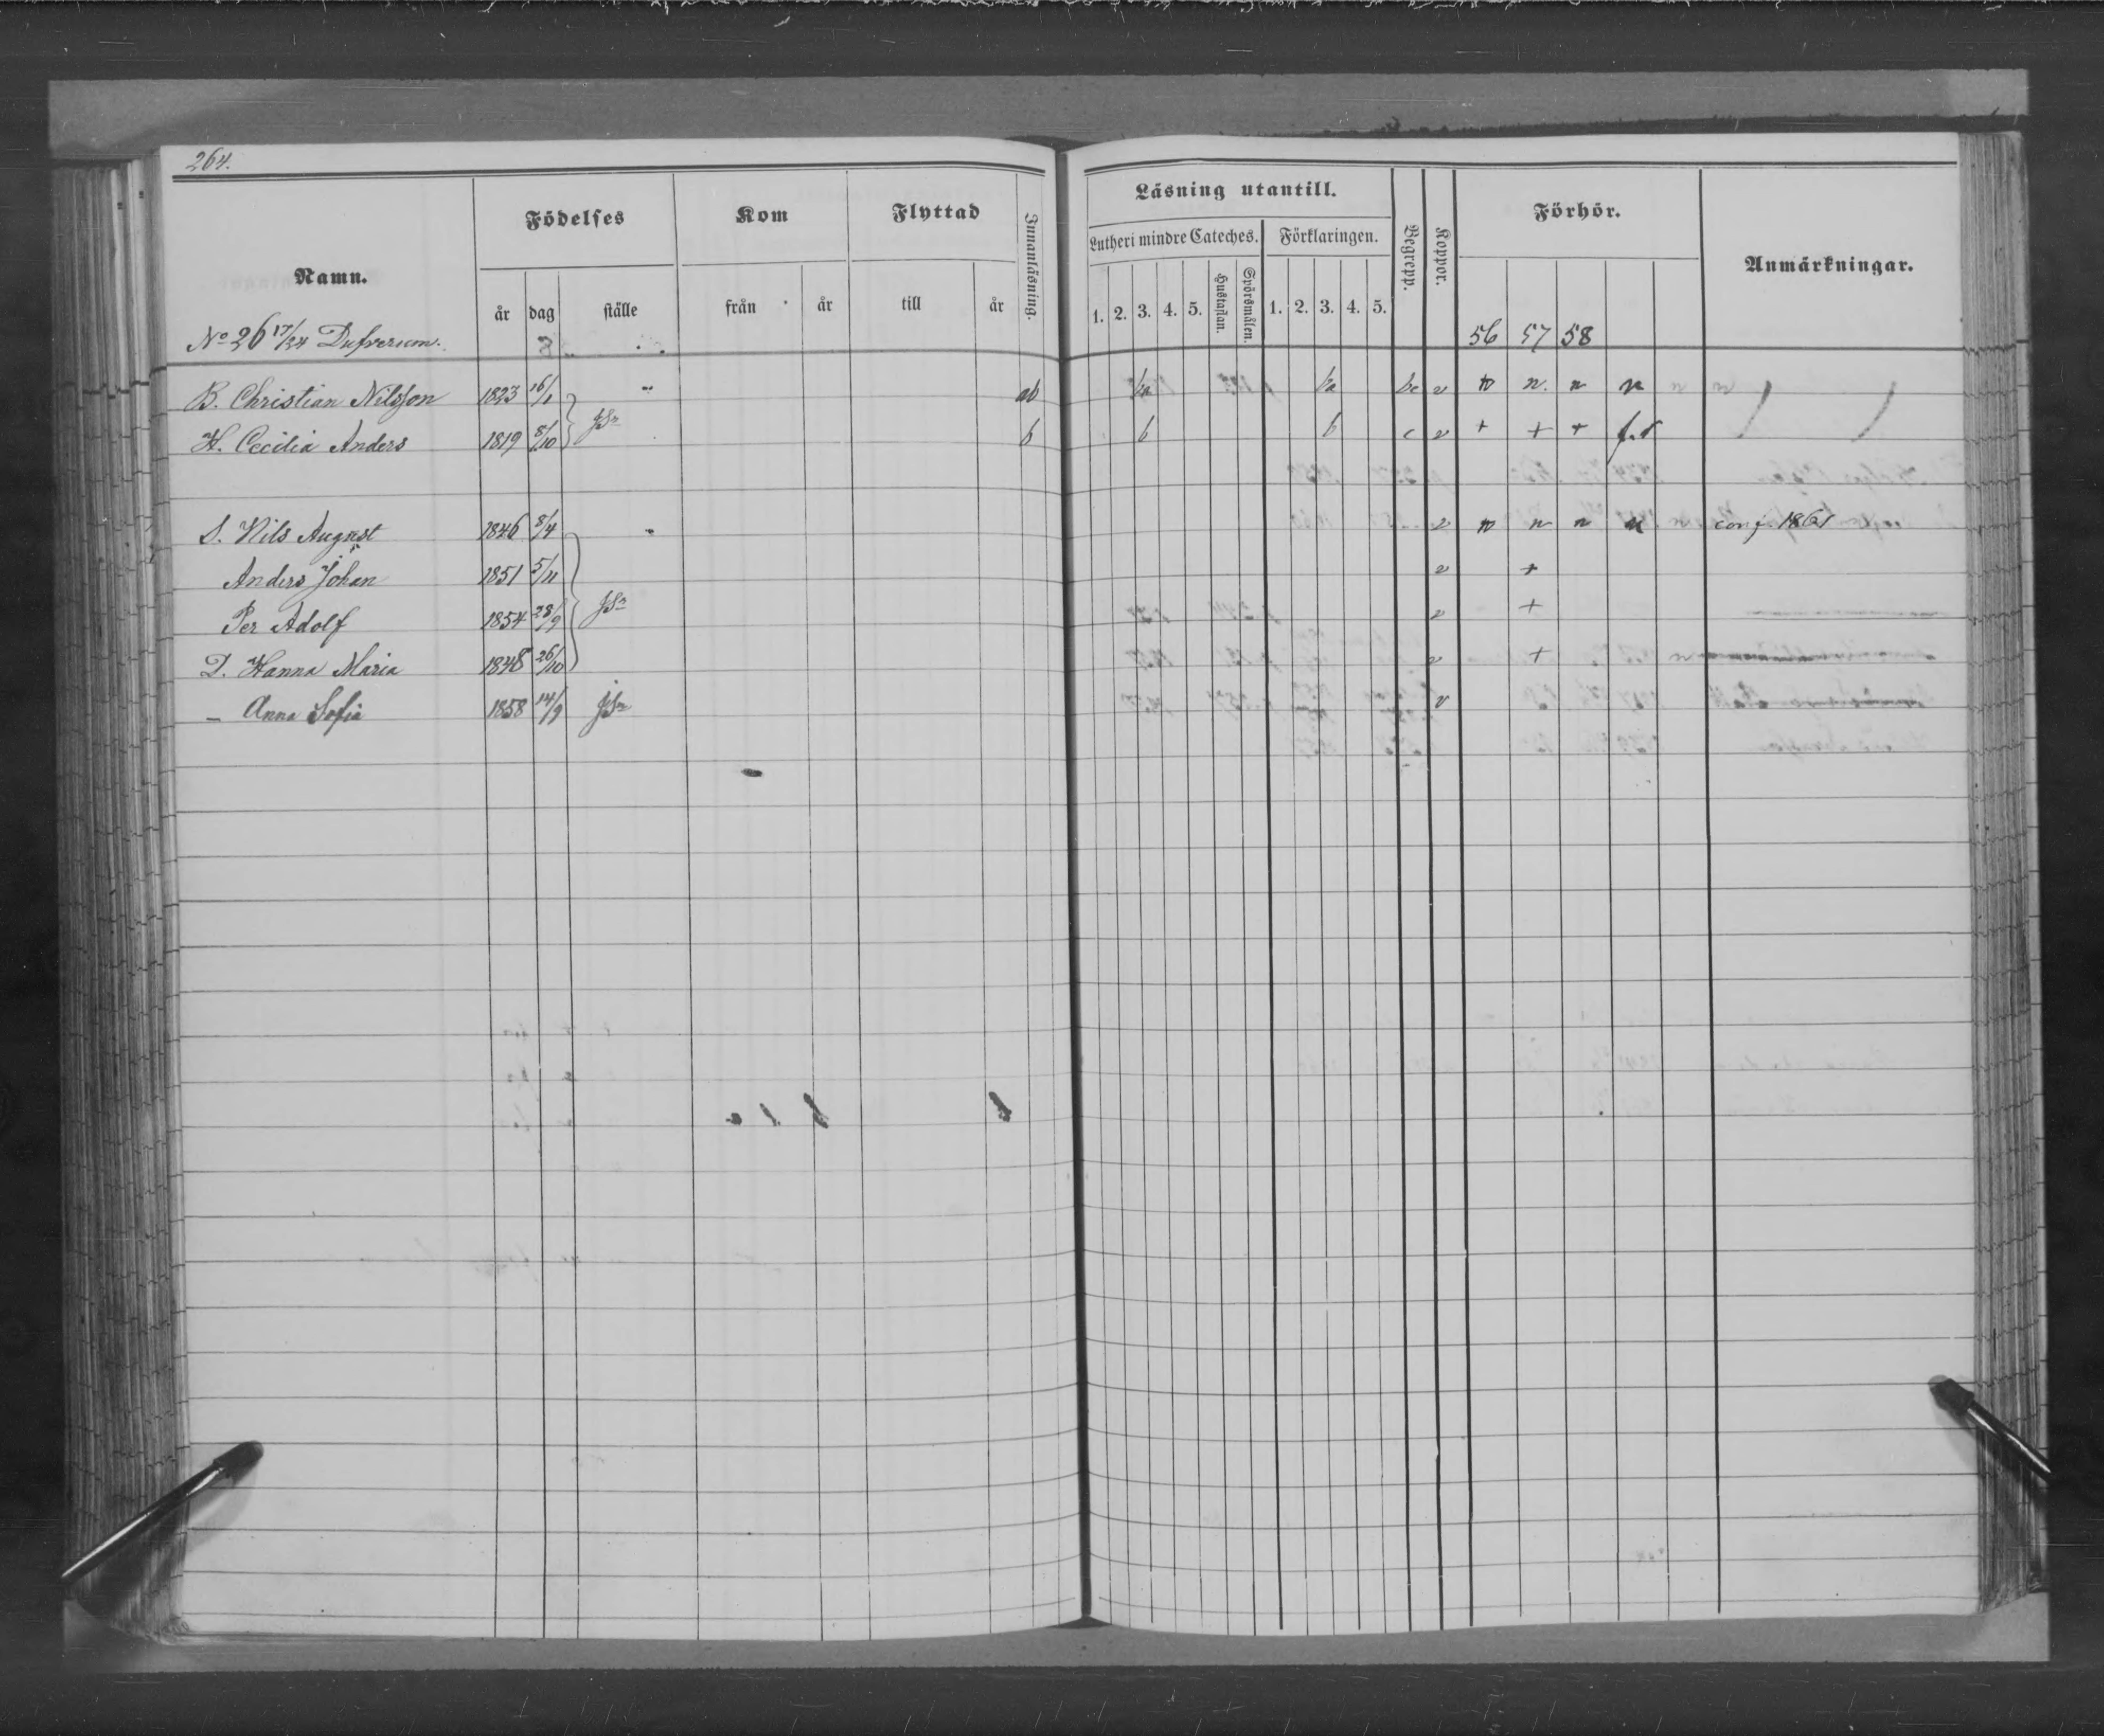 264.
Namn. Födelses Kom Flyttad Innanläsning. Läsning utantill. Begrepp. Koppor. Förhör. Anmärkningar.
Lutheri mindre Cateches. Förklaringen.
år dag ställe från år till år 1. 2. 3. 4. 5. Hustaflan. Spörsmålen. 1. 2. 3. 4. 5.
No 26 17/24 Dufverum. 56 57 58
B. Christian Nilsson 1823 16/1 ab ba ba bc v n n. n n
H. Cecilia Anders 1819 8/10 b b b c v + + +
S. Nils August 1846 8/4 v n n n n conf. 1861
Anders Johan 1851 5/11 v +
Per Adolf 1854 28/9 v +
D. Hanna Maria 1848 26/10 v +
– Anna Sofia 1858 14/9 v